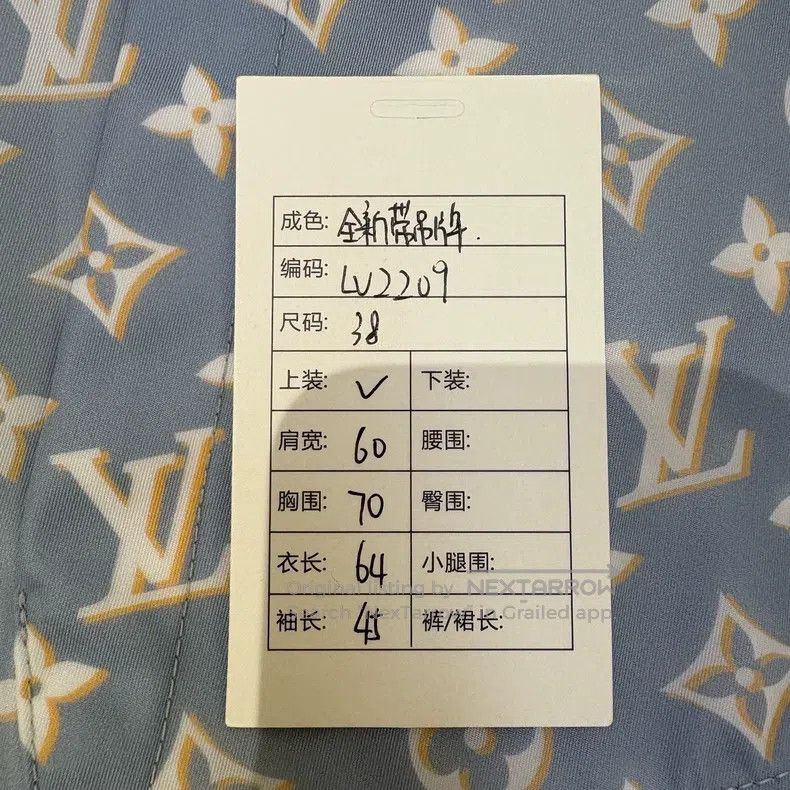 成色: 全新带吊牌.
编码: LV2209
尺码: 38
上装: ✓ 下装:
肩宽: 60 腰围:
胸围: 70 臀围:
衣长: 64 小腿围:
Original listing by NEXTARROW
Search "NexTarrow" in Grailed app
袖长: 45 裤/裙长: